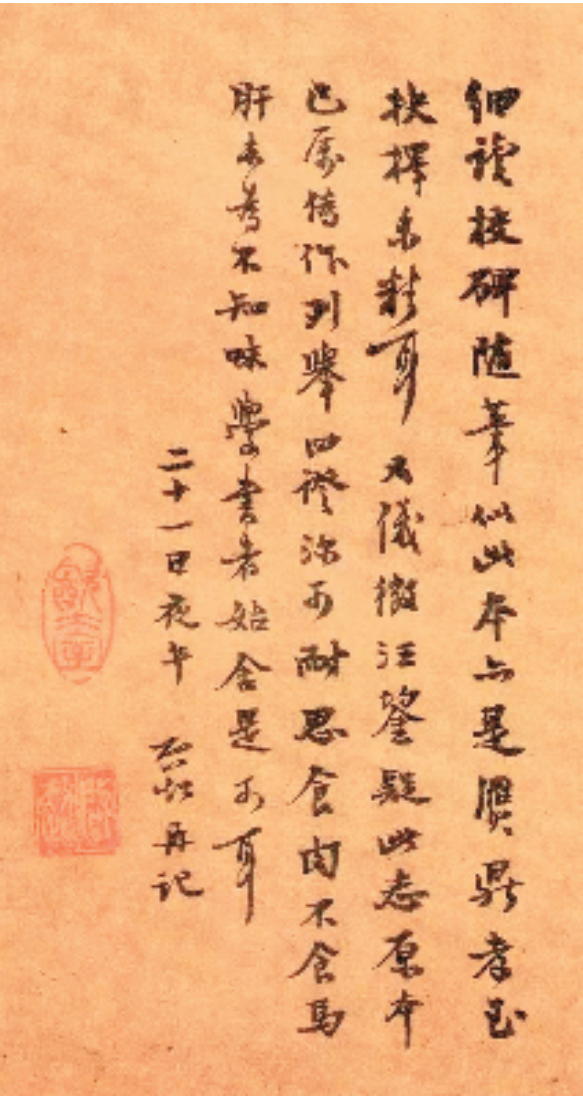 细读校碑随笔似此本亦是赝鼎孝玉
抉择未精耳又仪徵汪鋆疑此志原本
已属情作列举四證洵可耐思食肉不食马
肝未为不知味学书者始舍是可耳
二十一日夜午 再记